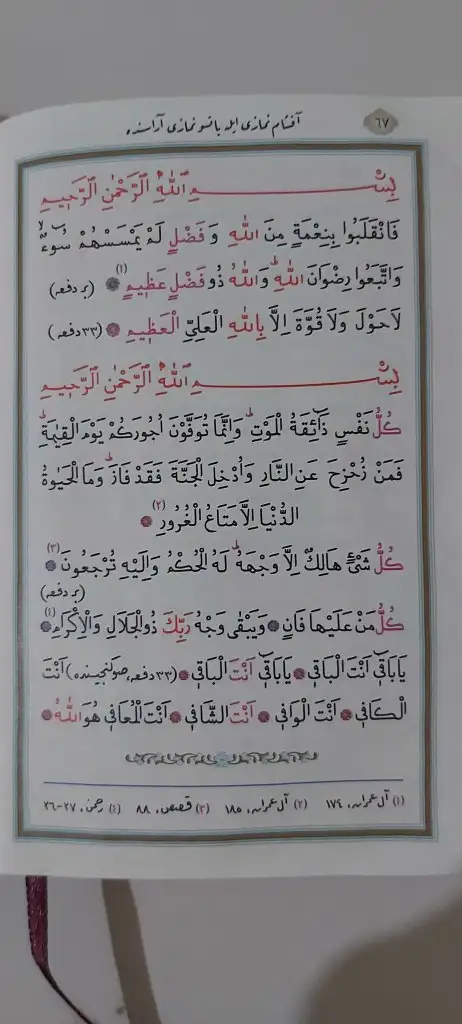 ٦٧ آقشام نمازى ايله ياتسو نمازى آراسنده
بِسْــــــمِ اللّٰهِ الرَّحْمٰنِ الرَّحٖيمِ
فَانْقَلَبُوا بِنِعْمَةٍ مِنَ اللّٰهِ وَفَضْلٍ لَمْ يَمْسَسْهُمْ سُوءٌ لا
وَاتَّبَعُوا رِضْوَانَ اللّٰهِ ط وَاللّٰهُ ذُو فَضْلٍ عَظٖيمٍ (١) (بر دفعه)
لَا حَوْلَ وَلَا قُوَّةَ اِلَّا بِاللّٰهِ الْعَلِىِّ الْعَظٖيمِ (٣٣ دفعه)
بِسْــــــمِ اللّٰهِ الرَّحْمٰنِ الرَّحٖيمِ
كُلُّ نَفْسٍ ذَٓائِقَةُ الْمَوْتِ ط وَاِنَّمَا تُوَفَّوْنَ اُجُورَكُمْ يَوْمَ الْقِيٰمَةِ ط
فَمَنْ زُحْزِحَ عَنِ النَّارِ وَاُدْخِلَ الْجَنَّةَ فَقَدْ فَازَ ط وَمَا الْحَيٰوةُ
الدُّنْيَا اِلَّا مَتَاعُ الْغُرُورِ (٢)
كُلُّ شَىْءٍ هَالِكٌ اِلَّا وَجْهَهُ ط لَهُ الْحُكْمُ وَاِلَيْهِ تُرْجَعُونَ (٣)
(بر دفعه)
كُلُّ مَنْ عَلَيْهَا فَانٍ وَيَبْقٰى وَجْهُ رَبِّكَ ذُو الْجَلَالِ وَالْاِكْرَامِ (٤)
يَا بَاقٖٓى اَنْتَ الْبَاقٖى يَا بَاقٖٓى اَنْتَ الْبَاقٖى (٣٣ دفعه، صوڭنجيسنده) اَنْتَ
الْكَافٖى اَنْتَ الْوَافٖى اَنْتَ الشَّافٖى اَنْتَ الْمُعَافٖى هُوَ اللّٰهُ
(١) آل عمران، ١٧٤ (٢) آل عمران، ١٨٥ (٣) قصص، ٨٨ (٤) رحمن، ٢٧-٢٦